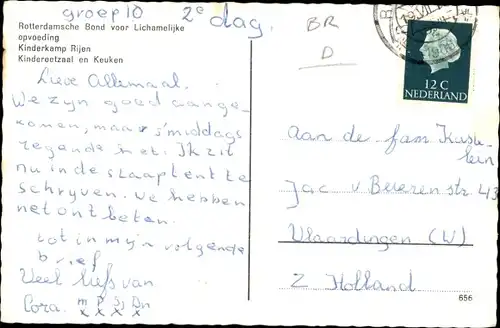 groep 10 2e dag.
BR
D
Rotterdamsche Bond voor Lichamelijke
opvoeding
Kinderkamp Rijen
Kindereetzaal en Keuken
12 C
NEDERLAND
Lieve Allemaal.
We zijn goed aange-
komen, maar s'middags
regende het. Ik zit
nu in de slaaptent te
schrijven. We hebben
net ontbeten.
tot in mijn volgende
brief
Veel liefs van
Cora. m P Sj Dn
x x x x
Aan de fam Kaste-
lein
Jac v Beieren str 43
Vlaardingen (W)
Z Holland
656